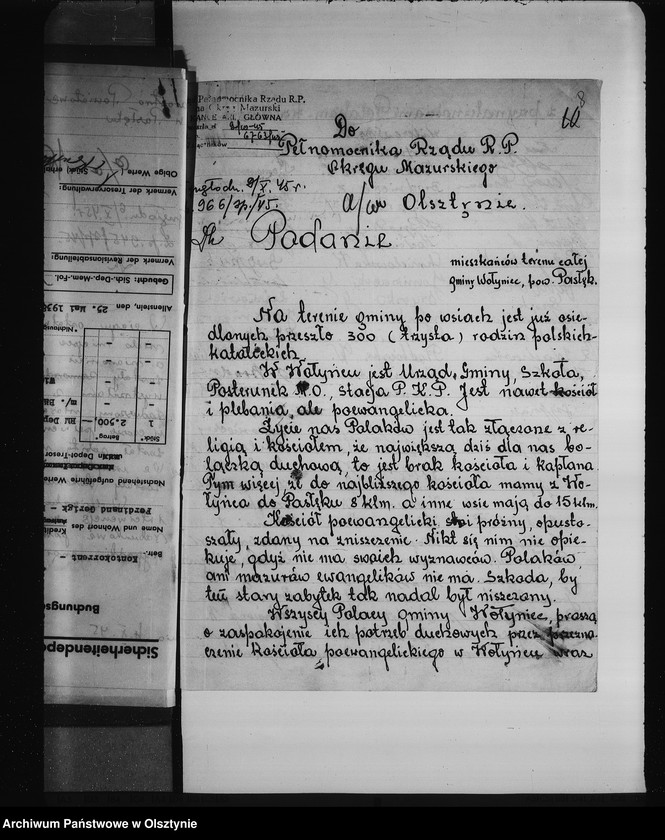 Pełnomocnika Rządu R.P.
Mazurski
GŁÓWNA
6763/45
8
60
Do
Pełnomocnika Rządu R.P.
Okręgu Mazurskiego
a/w Olsztynie.
8/X. 45 r.
966/zp./45.
Podanie
mieszkańców terenu całej
gminy Wołyniec, pow. Pasłęk.
Na terenie gminy po wsiach jest już osie-
dlonych przeszło 300 (trzysta) rodzin polskich-
katolickich.
W Wołyńcu jest Urząd Gminy, Szkoła,
Posterunek M.O., stacja P.K.P. Jest nawet kościół
i plebania, ale poewangelicka.
Życie nas Polaków jest tak złączone z re-
ligią i kościołem, że największą dziś dla nas bo-
lączką duchową, to jest brak kościoła i kapłana.
Tym więcej, że do najbliższego kościoła mamy z Wo-
łyńca do Pasłęku 8 klm. a inne wsie mają do 15 klm.
Kościół poewangelicki stoi próżny, opusto-
szały, zdany na zniszczenie. Nikt się nim nie opie-
kuje, gdyż nie ma swoich wyznawców. Polaków,
ani mazurów ewangelików nie ma. Szkoda, by
ten stary zabytek tak nadal był niszczony.
Wszyscy Polacy gminy Wołyniec, proszą
o zaspokojenie ich potrzeb duchowych przez przezna-
czenie kościoła poewangelickiego w Wołyńcu wraz
Obige Werte
Vermerk der Tresorverwaltung:
Vermerk der Revisionsabteilung:
Gebucht: Sich.-Dep.-Mem.-Fol.
Allenstein, den 25. Mai 193
Stück
Betrag
1
2.900,—
RM
Nachstehend aufgeführte Werte
Depot-Tresor
Ferdinand Gerigk
Name und Wohnort des
Kredit
Betr.
Kontokorrent
Buchungs
Sicherheitendepo
Archiwum Państwowe w Olsztynie